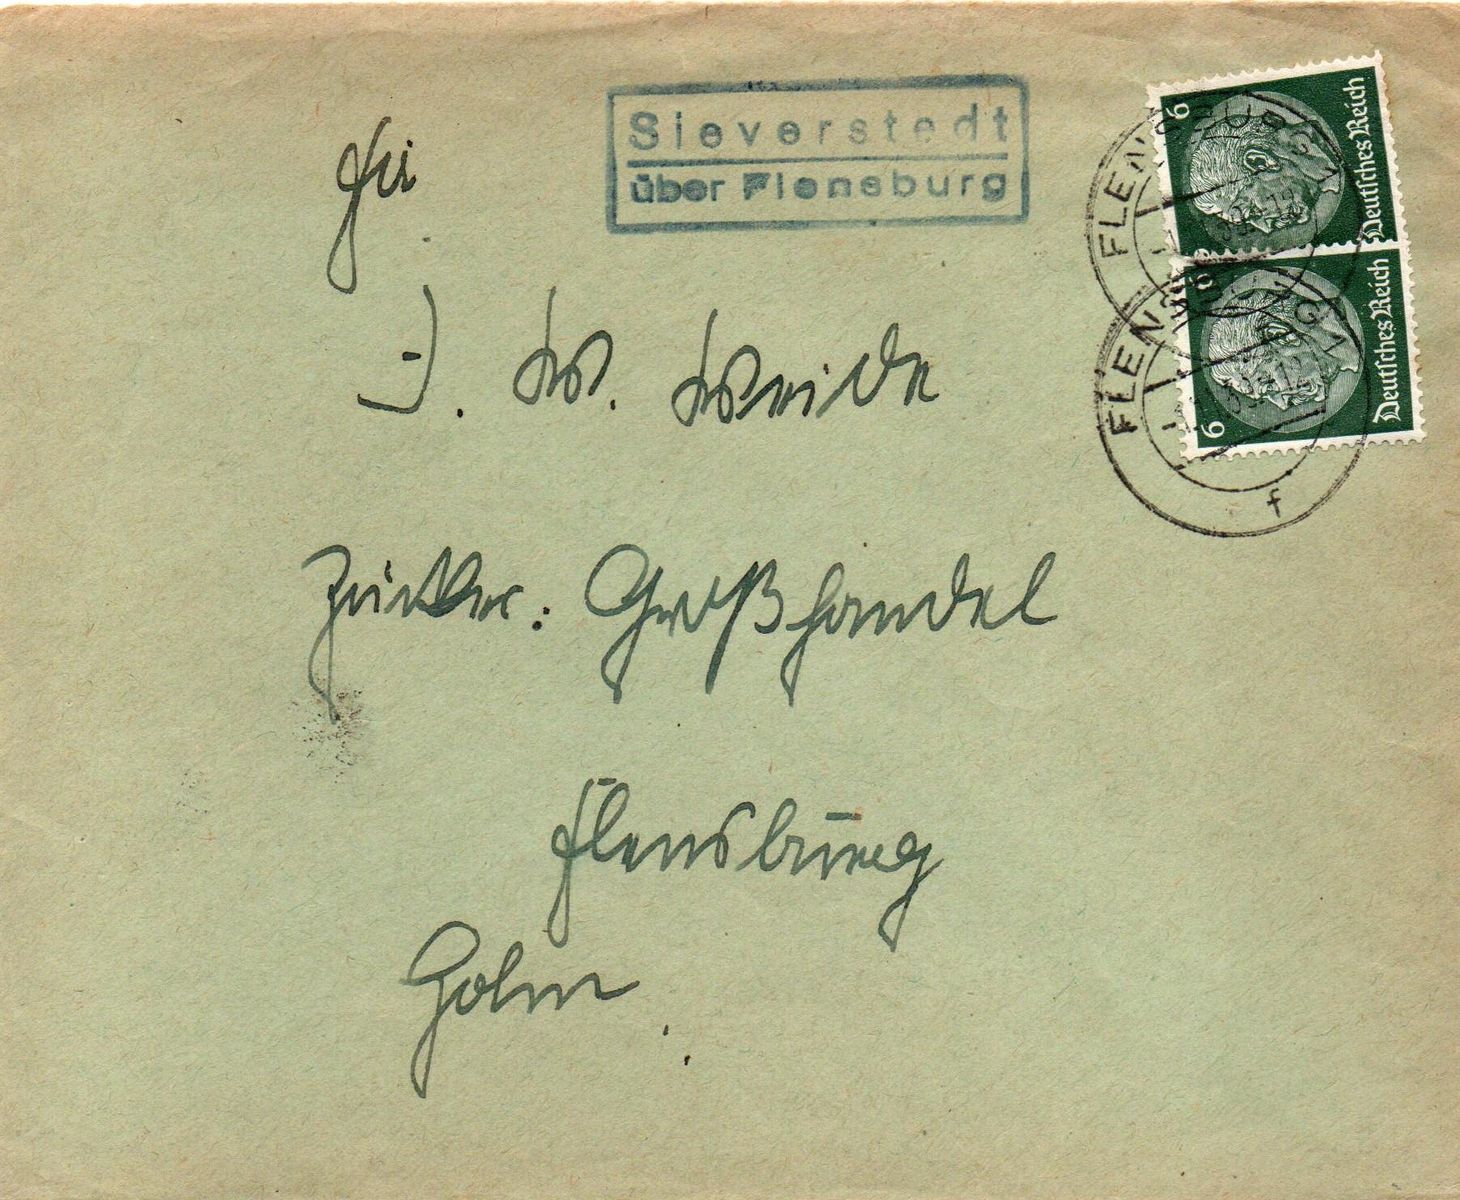 Sieverstedt
über Flensburg
6
Deutsches Reich
6
Deutsches Reich
FLENSBURG 1
FLENSBURG 1
f
J. W. Weide
Zucker: Großhandel
Flensburg
Holm